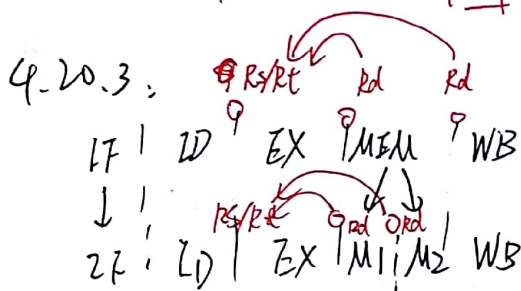 4.20.3:
Rs/Rt Rd Rd
IF ID EX MEM WB
Rs/Rt Rd Rd
IF ID EX M1 M2 WB